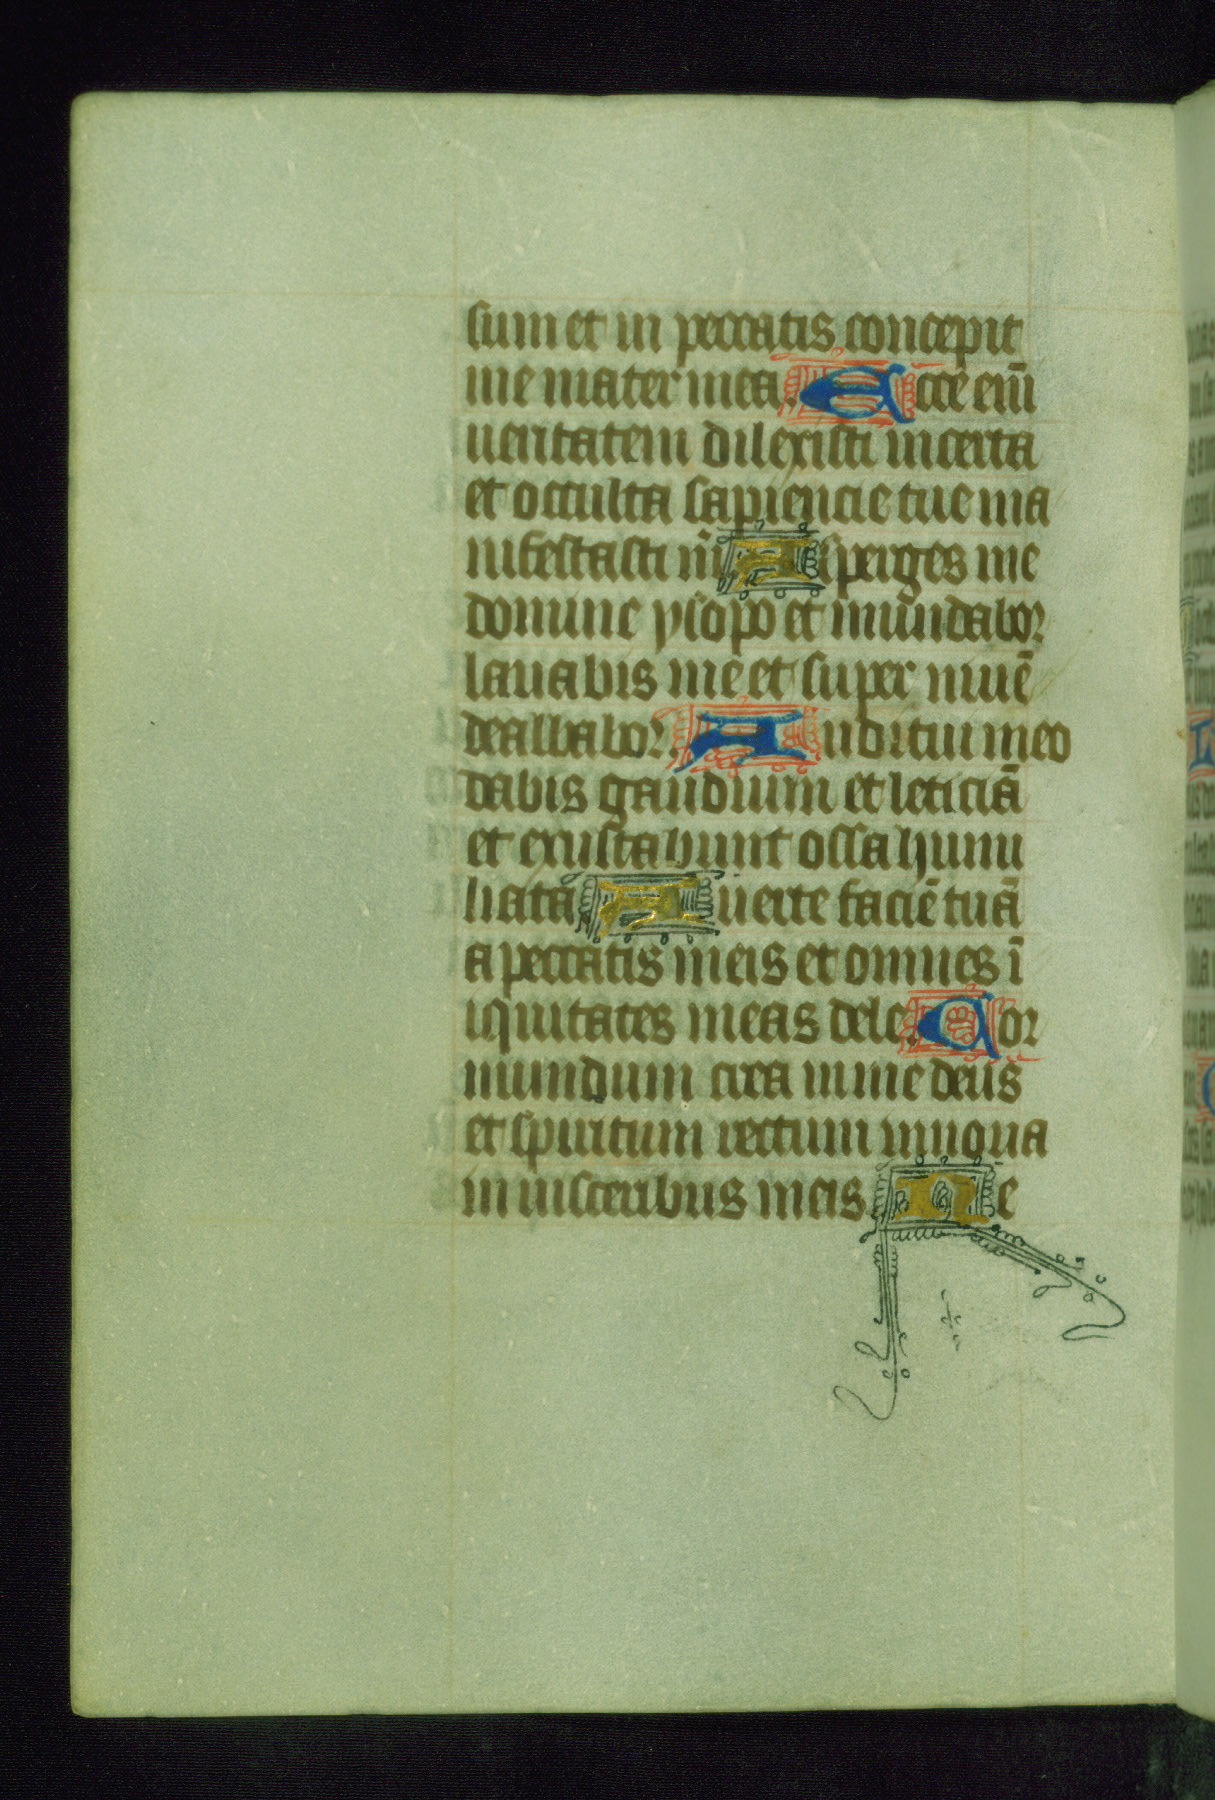 sum et in peccatis concepit
me mater mea. Ecce em̄
ueritatem dilexisti incerta
et occulta sapiencie tue ma
nifestasti m̄ Asperges me
domine ysopo et mundabor
lauabis me et super niuē
dealbabor. Auditui meo
dabis gaudium et leticiā
et exultabunt ossa humi
liata Auerte faciē tuā
a peccatis meis et omnes ī
iquitates meas dele. Cor
mundum crea in me deus
et spiritum rectum innoua
in uisceribus meis. Ne